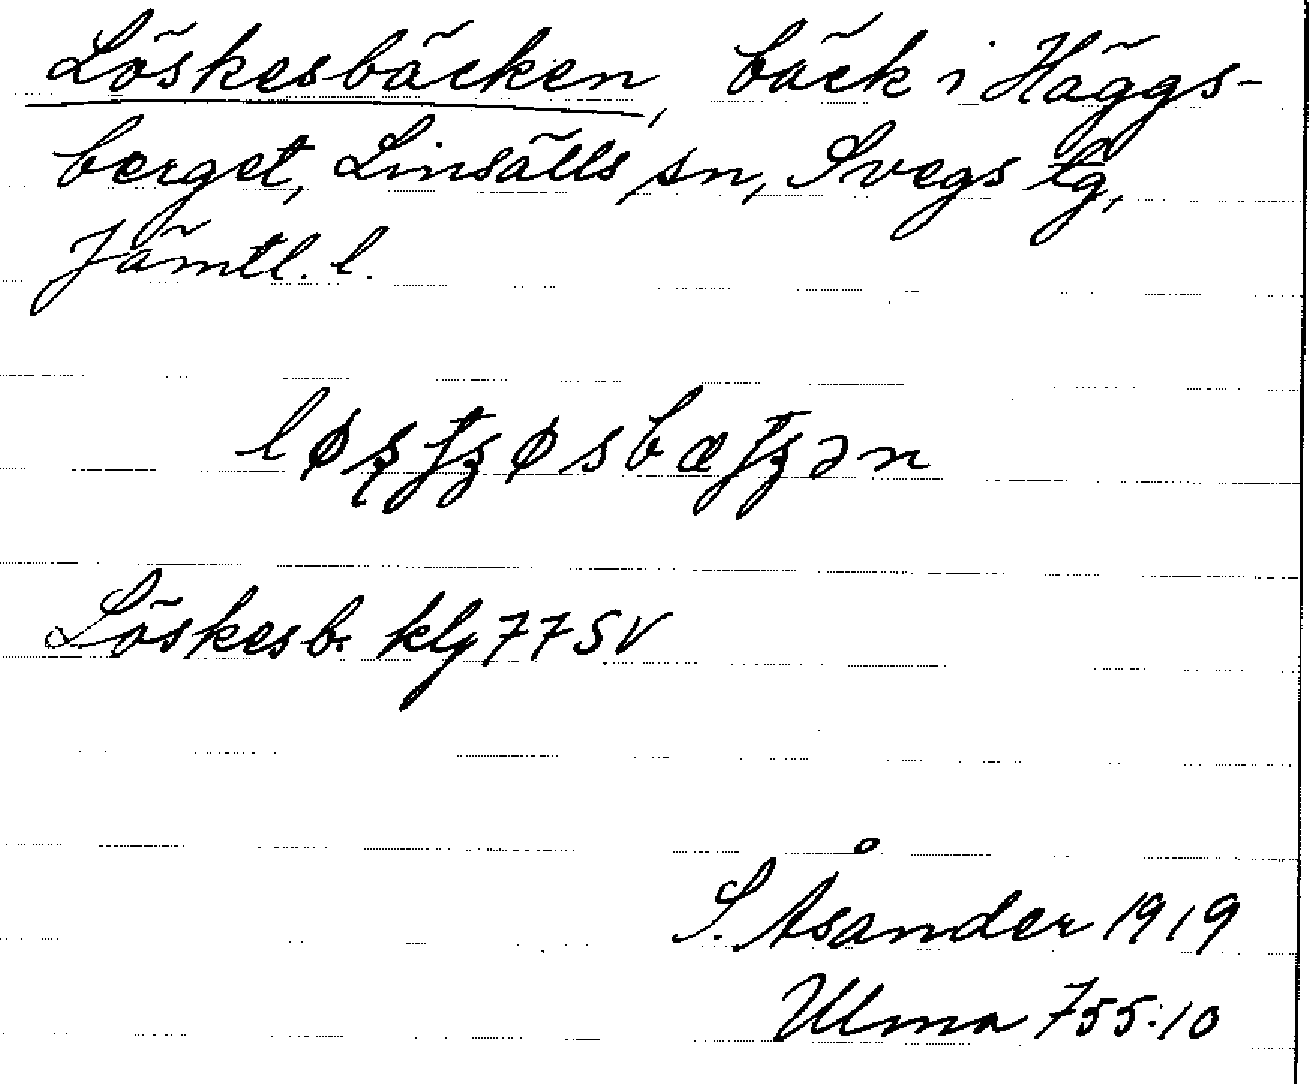 Löskesbäcken, bäck i Häggs-
berget, Linsälls sn, Svegs tg,
Jämtl. l.
Löskesb. klg 77 SV
S. Åsander 1919
Ulma 755:10